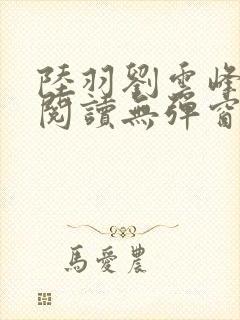 陸羽劉雲峰
閱讀無彈窗
馬愛農